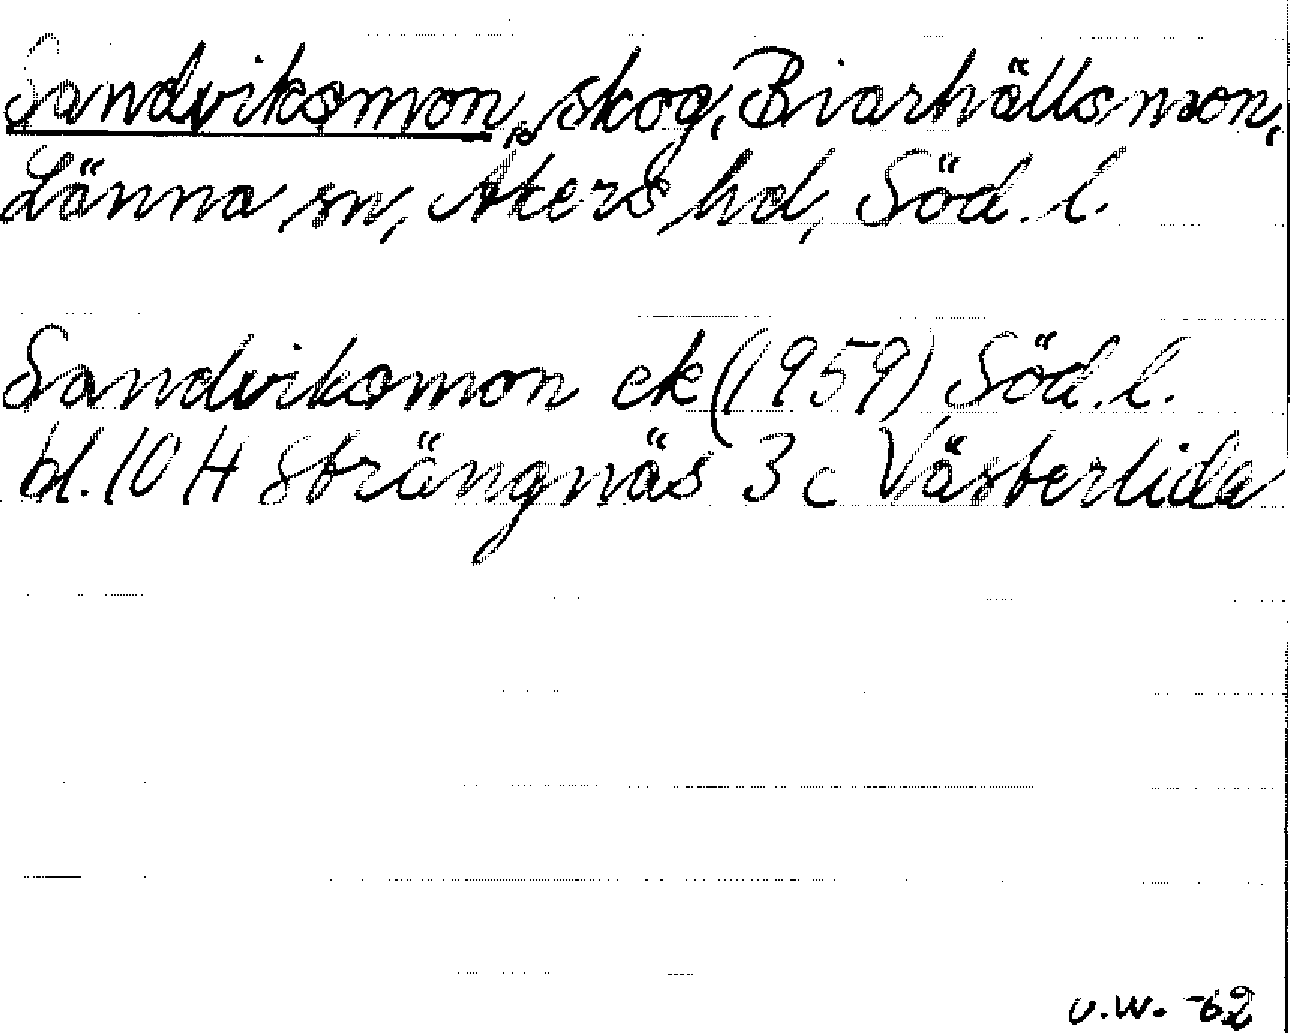 Sandviksmon, skog, Biarhällsmon,
Länna sn, Åkers hd, Söd. l.
Sandviksmon ek (1959) Söd. l.
bl. 10 H Strängnäs 3 c Västerlida
U.W. -62